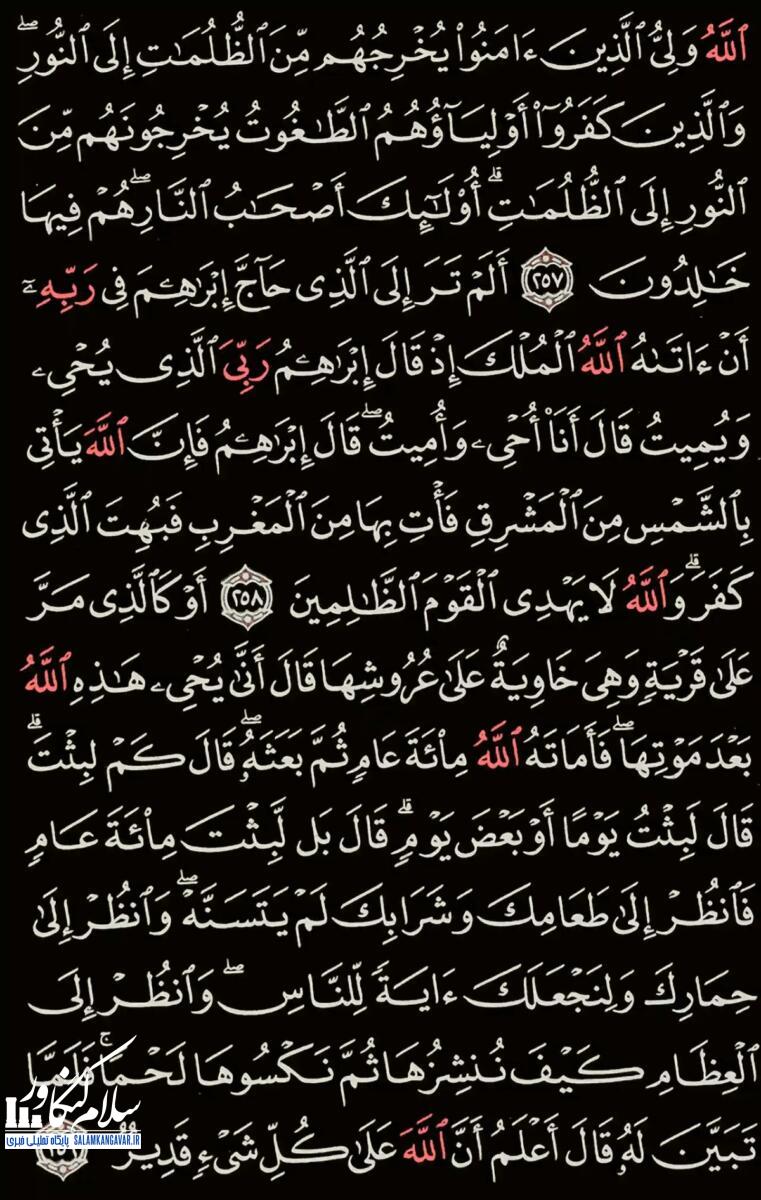 ٱللَّهُ وَلِىُّ ٱلَّذِينَ ءَامَنُوا۟ يُخْرِجُهُم مِّنَ ٱلظُّلُمَـٰتِ إِلَى ٱلنُّورِ ۖ
وَٱلَّذِينَ كَفَرُوٓا۟ أَوْلِيَآؤُهُمُ ٱلطَّـٰغُوتُ يُخْرِجُونَهُم مِّنَ
ٱلنُّورِ إِلَى ٱلظُّلُمَـٰتِ ۗ أُو۟لَـٰٓئِكَ أَصْحَـٰبُ ٱلنَّارِ ۖ هُمْ فِيهَا
خَـٰلِدُونَ ٢٥٧ أَلَمْ تَرَ إِلَى ٱلَّذِى حَآجَّ إِبْرَٰهِـۧمَ فِى رَبِّهِۦٓ
أَنْ ءَاتَىٰهُ ٱللَّهُ ٱلْمُلْكَ إِذْ قَالَ إِبْرَٰهِـۧمُ رَبِّىَ ٱلَّذِى يُحْىِۦ
وَيُمِيتُ قَالَ أَنَا۠ أُحْىِۦ وَأُمِيتُ ۖ قَالَ إِبْرَٰهِـۧمُ فَإِنَّ ٱللَّهَ يَأْتِى
بِٱلشَّمْسِ مِنَ ٱلْمَشْرِقِ فَأْتِ بِهَا مِنَ ٱلْمَغْرِبِ فَبُهِتَ ٱلَّذِى
كَفَرَ ۗ وَٱللَّهُ لَا يَهْدِى ٱلْقَوْمَ ٱلظَّـٰلِمِينَ ٢٥٨ أَوْ كَٱلَّذِى مَرَّ
عَلَىٰ قَرْيَةٍ وَهِىَ خَاوِيَةٌ عَلَىٰ عُرُوشِهَا قَالَ أَنَّىٰ يُحْىِۦ هَـٰذِهِ ٱللَّهُ
بَعْدَ مَوْتِهَا ۖ فَأَمَاتَهُ ٱللَّهُ مِا۟ئَةَ عَامٍ ثُمَّ بَعَثَهُۥ ۖ قَالَ كَمْ لَبِثْتَ ۖ
قَالَ لَبِثْتُ يَوْمًا أَوْ بَعْضَ يَوْمٍ ۖ قَالَ بَل لَّبِثْتَ مِا۟ئَةَ عَامٍ
فَٱنظُرْ إِلَىٰ طَعَامِكَ وَشَرَابِكَ لَمْ يَتَسَنَّهْ ۖ وَٱنظُرْ إِلَىٰ
حِمَارِكَ وَلِنَجْعَلَكَ ءَايَةً لِّلنَّاسِ ۖ وَٱنظُرْ إِلَى
ٱلْعِظَامِ كَيْفَ نُنشِزُهَا ثُمَّ نَكْسُوهَا لَحْمًا ۚ فَلَمَّا
تَبَيَّنَ لَهُۥ قَالَ أَعْلَمُ أَنَّ ٱللَّهَ عَلَىٰ كُلِّ شَىْءٍ قَدِيرٌ
سلام کنگاور
پایگاه تحلیلی خبری SALAMKANGAVAR.IR